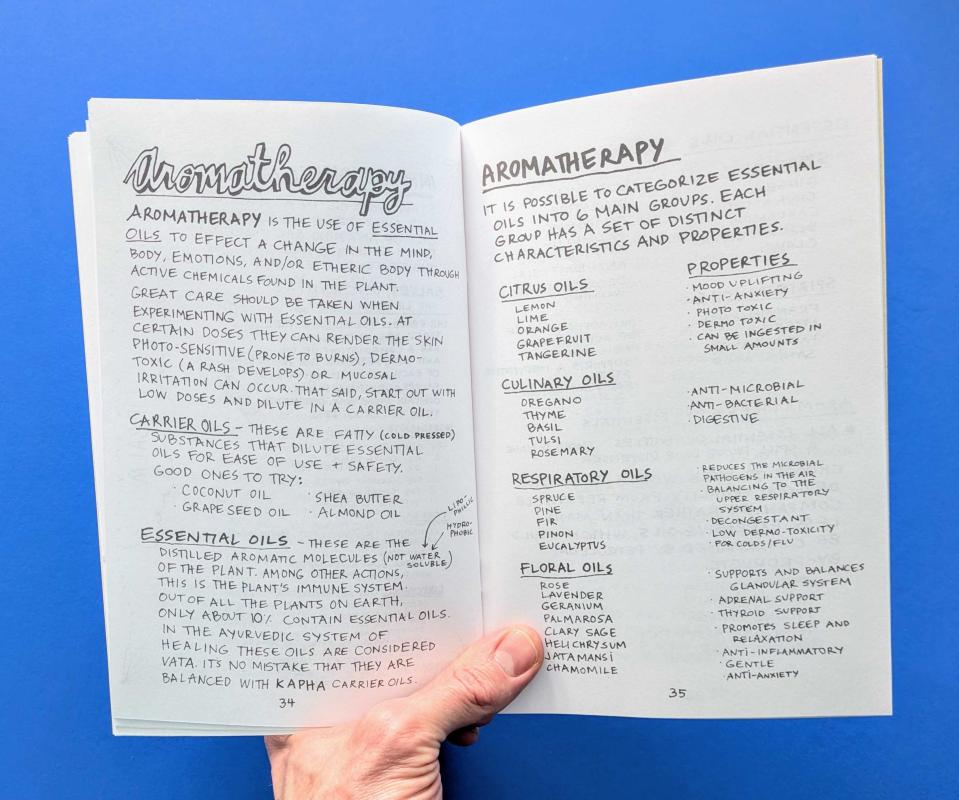 Aromatherapy
AROMATHERAPY IS THE USE OF ESSENTIAL
OILS TO EFFECT A CHANGE IN THE MIND,
BODY, EMOTIONS, AND/OR ETHERIC BODY THROUGH
ACTIVE CHEMICALS FOUND IN THE PLANT.
GREAT CARE SHOULD BE TAKEN WHEN
EXPERIMENTING WITH ESSENTIAL OILS. AT
CERTAIN DOSES THEY CAN RENDER THE SKIN
PHOTO-SENSITIVE (PRONE TO BURNS), DERMO-
TOXIC (A RASH DEVELOPS) OR MUCOSAL
IRRITATION CAN OCCUR. THAT SAID, START OUT WITH
LOW DOSES AND DILUTE IN A CARRIER OIL.
CARRIER OILS - THESE ARE FATTY (COLD PRESSED)
SUBSTANCES THAT DILUTE ESSENTIAL
OILS FOR EASE OF USE + SAFETY.
GOOD ONES TO TRY:
· COCONUT OIL · SHEA BUTTER
· GRAPESEED OIL · ALMOND OIL
LIPO-
PHILLIC
HYDRO-
PHOBIC
ESSENTIAL OILS - THESE ARE THE
DISTILLED AROMATIC MOLECULES (NOT WATER SOLUBLE)
OF THE PLANT. AMONG OTHER ACTIONS,
THIS IS THE PLANT'S IMMUNE SYSTEM.
OUT OF ALL THE PLANTS ON EARTH,
ONLY ABOUT 10% CONTAIN ESSENTIAL OILS.
IN THE AYURVEDIC SYSTEM OF
HEALING THESE OILS ARE CONSIDERED
VATA. IT'S NO MISTAKE THAT THEY ARE
BALANCED WITH KAPHA CARRIER OILS.
34
AROMATHERAPY
IT IS POSSIBLE TO CATEGORIZE ESSENTIAL
OILS INTO 6 MAIN GROUPS. EACH
GROUP HAS A SET OF DISTINCT
CHARACTERISTICS AND PROPERTIES.
PROPERTIES
CITRUS OILS
LEMON
LIME
ORANGE
GRAPEFRUIT
TANGERINE
· MOOD UPLIFTING
· ANTI-ANXIETY
· PHOTO TOXIC
· DERMO TOXIC
· CAN BE INGESTED IN
SMALL AMOUNTS
CULINARY OILS
OREGANO
THYME
BASIL
TULSI
ROSEMARY
· ANTI-MICROBIAL
· ANTI-BACTERIAL
· DIGESTIVE
RESPIRATORY OILS
SPRUCE
PINE
FIR
PINON
EUCALYPTUS
· REDUCES THE MICROBIAL
PATHOGENS IN THE AIR
· BALANCING TO THE
UPPER RESPIRATORY
SYSTEM
· DECONGESTANT
· LOW DERMO-TOXICITY
· FOR COLDS/FLU
FLORAL OILS
ROSE
LAVENDER
GERANIUM
PALMAROSA
CLARY SAGE
HELICHRYSUM
JATAMANSI
CHAMOMILE
· SUPPORTS AND BALANCES
GLANDULAR SYSTEM
· ADRENAL SUPPORT
· THYROID SUPPORT
· PROMOTES SLEEP AND
RELAXATION
· ANTI-INFLAMMATORY
· GENTLE
· ANTI-ANXIETY
35